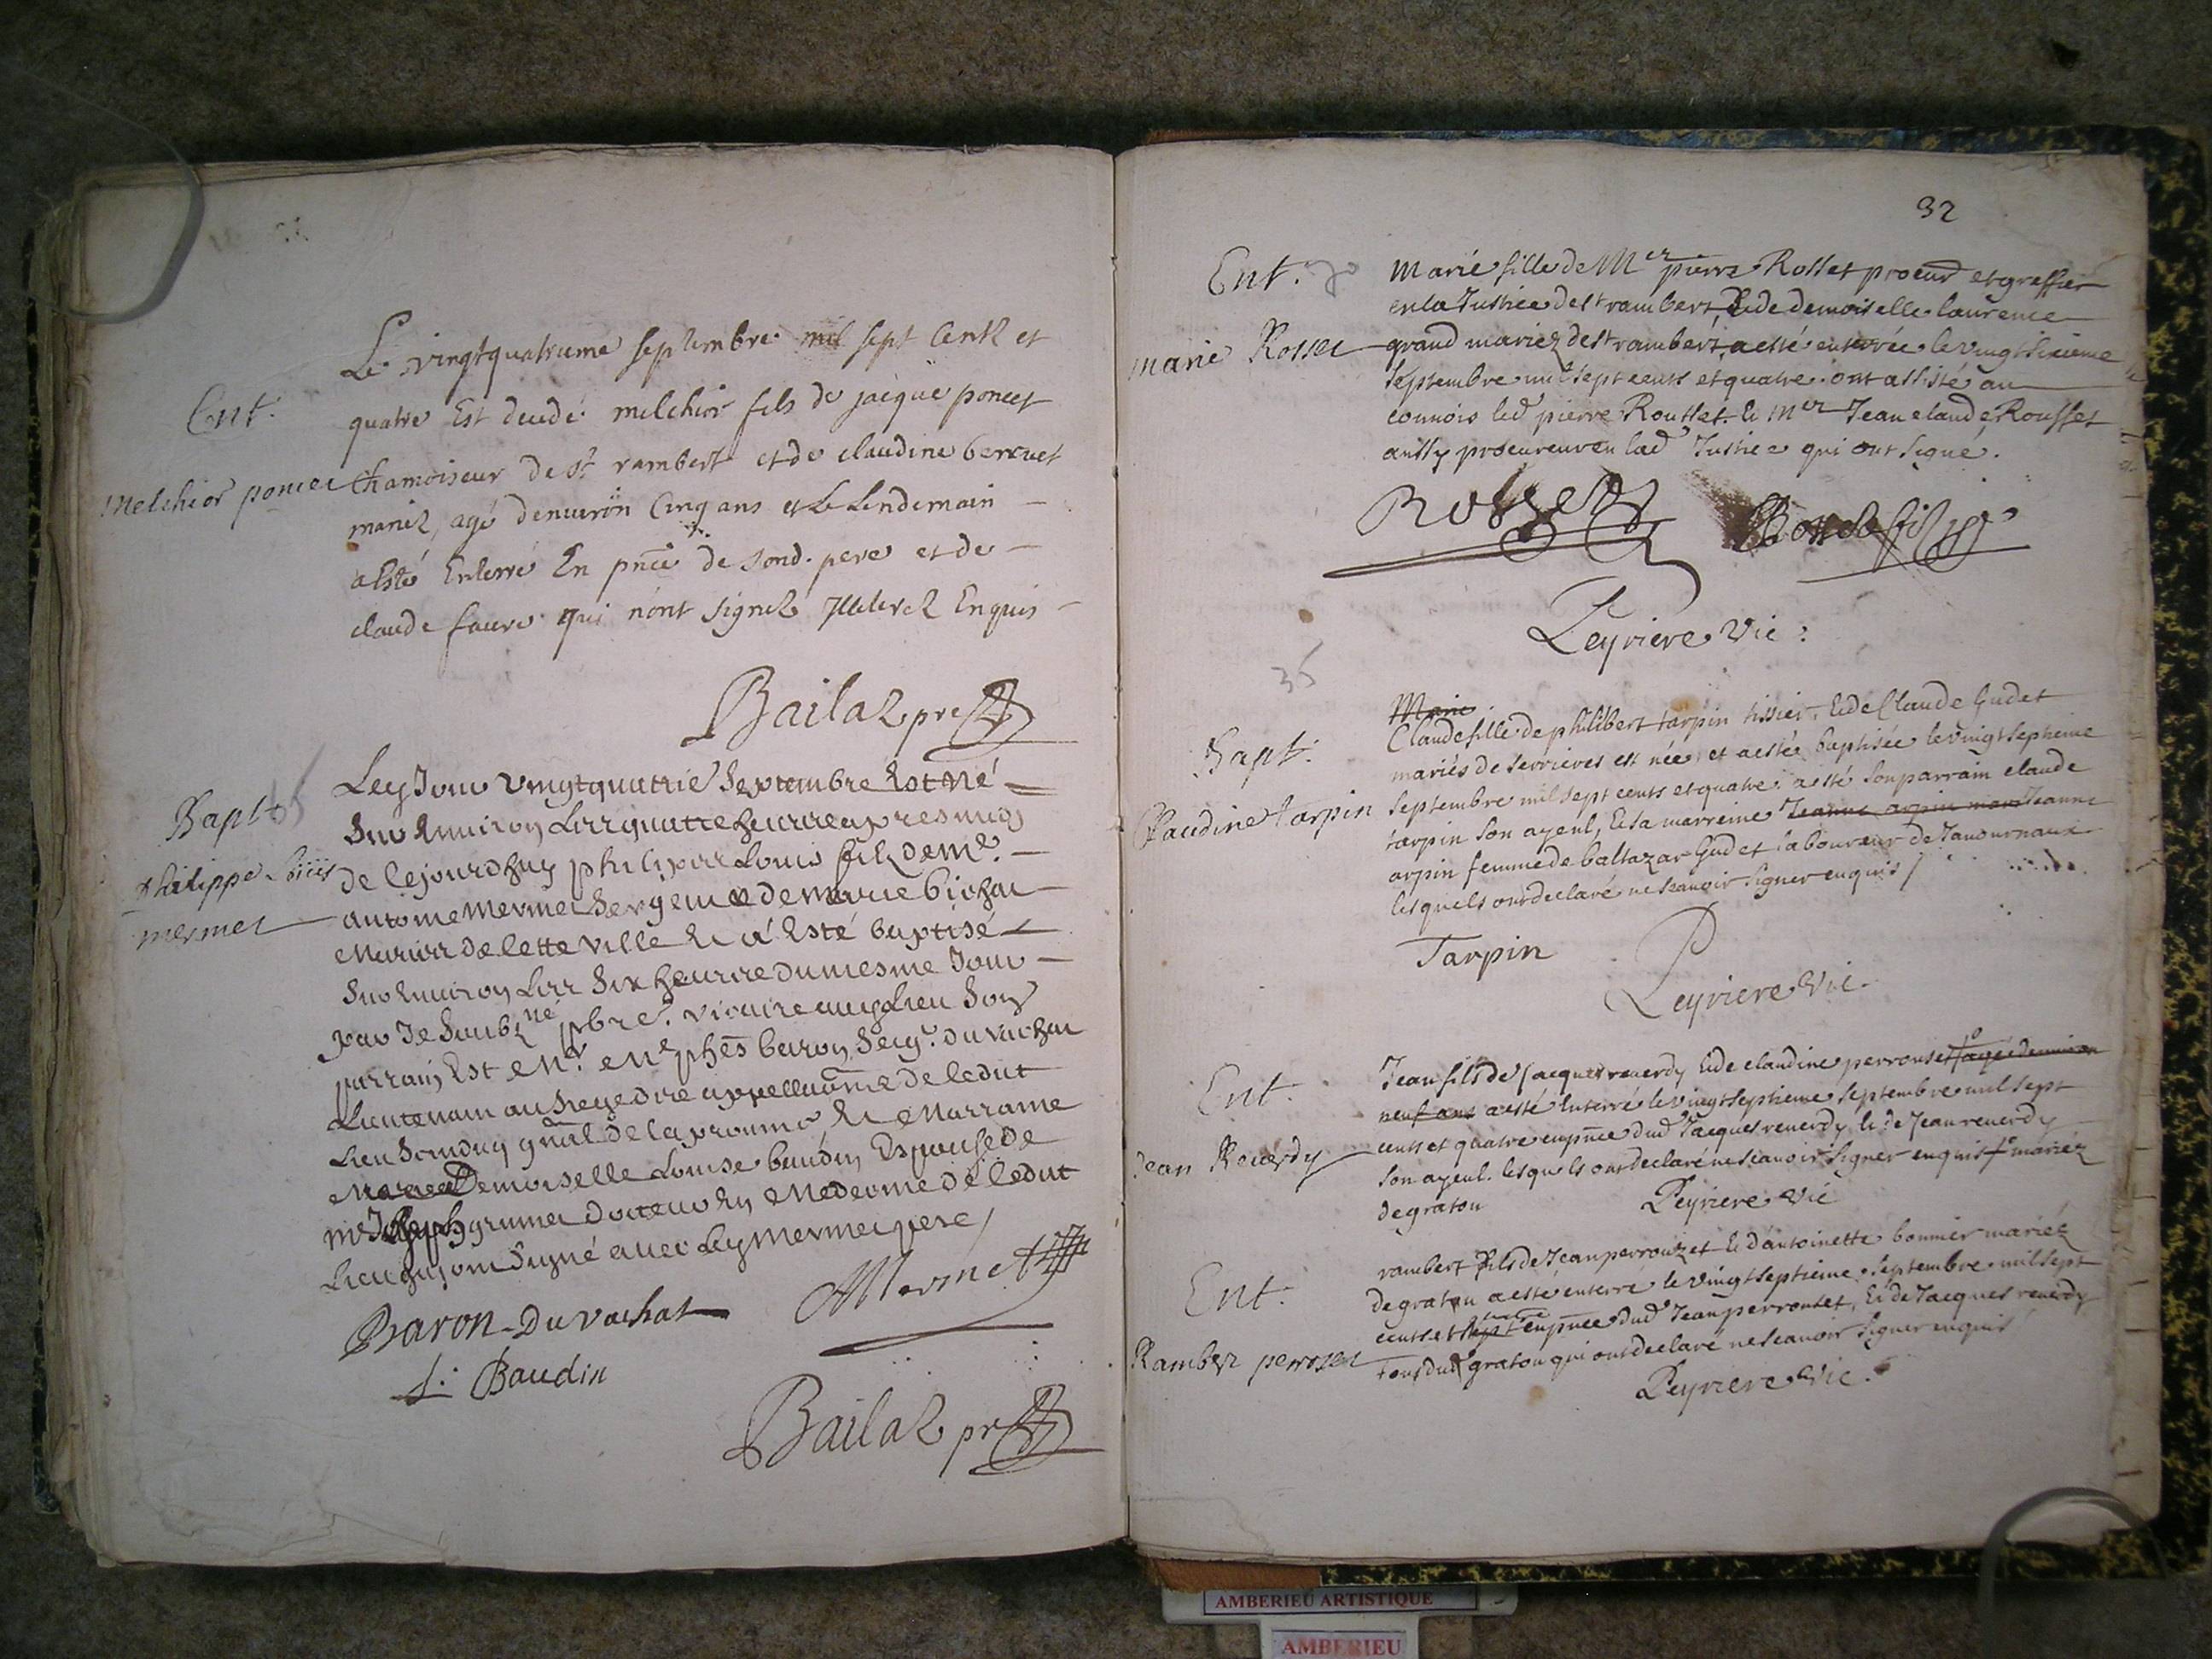 Le vingtquatrieme septembre mil sept Centz et
Ent.
quatre Est decedé melchior fils de jacque poncet
Melchior poncet
Chamoiseur de st rambert et de claudine
mariez, agé denuiron Cinq ans et Le Lendemain
a esté Enterré En pnce de sond. pere et de
claude faure qui n'ont signez Illiterez Enquis
Bailaz pre
Bapt.
Philippe Louis
mermet
Ley Jour vingtquatrie Septembre Est né
Sur Enuiron Les quattre heures apres midy
de Cejourdhuy philippe Louis filz de Me.
antoine Mermet Sergent et de Marie bichat
Maries de Cette ville Et a Esté baptisé
Sur Enuiron Les Six heures du mesme Jour
par Je Soubzné pbre. vicaire audt Lieu Son
parrain Est Mr. Me phes baron Seigr. du vachat
Lieutenant au Siege des appellaons de Cedit
Lieu Scindicq gnal de la prouince Et Marraine
Demoiselle Louise baudin Espouse de
mr Joseph grumet docteur En Medecine de Cedit
Lieu qui ont Signé auec Ley Mermet pere /
Baron Du vachat
Mermet
L. Baudin
Bailaz pre
32
Ent.
marie Rosset
Marie fille de Mer pierre Rosset procur et greffier
en la Justice de st rambert, & de demoiselle laurence
grand mariez de st rambert, a esté enterrée le vingt sixieme
septembre mil sept cents et quatre. ont assisté au
connois led pierre Rousset. & Mer Jean claude Rousset
aussy procureur en lad Justice qui ont signé.
Rosset
Leyriere Vic.
35
Marie
Bapt.
Claudine tarpin
Claude fille de philibert tarpin tissier, & de Claude Gudet
mariés de serrieres est née, et a estée baptisée le vingt septieme
septembre mil sept cents et quatre. a esté son parrain claude
tarpin son ayeul, & sa marreine Jeanne arpin Jeanne
arpin femme de baltazar Gudet laboureur de Janournaux
lesquels ont declaré ne scauoir signer enquis /
Tarpin
Leyriere Vic.
Ent.
Jean Reuerdy
Jean fils de Jacques reuerdy & de claudine perrouset agé denuiron
neuf ans a esté Enterré le vingt septieme septembre mil sept
cents et quatre en pnce dud Jacques reuerdy, & de Jean reuerdy
son ayeul. lesquels ont declaré ne scauoir signer enquis mariez
de graton
Leyriere Vic
Ent.
Rambert perroset
rambert fils de Jean perrouzet & d'antoinette bonnier mariéz
de graton a esté enterré le vingt septieme septembre mil sept
cents et sept quatre en pnce dud Jean perrouset, & de Jacques reuerdy
tous dud graton qui ont declaré ne scauoir signer enquis
Leyriere Vic.
AMBERIEU ARTISTIQUE
AMBERIEU